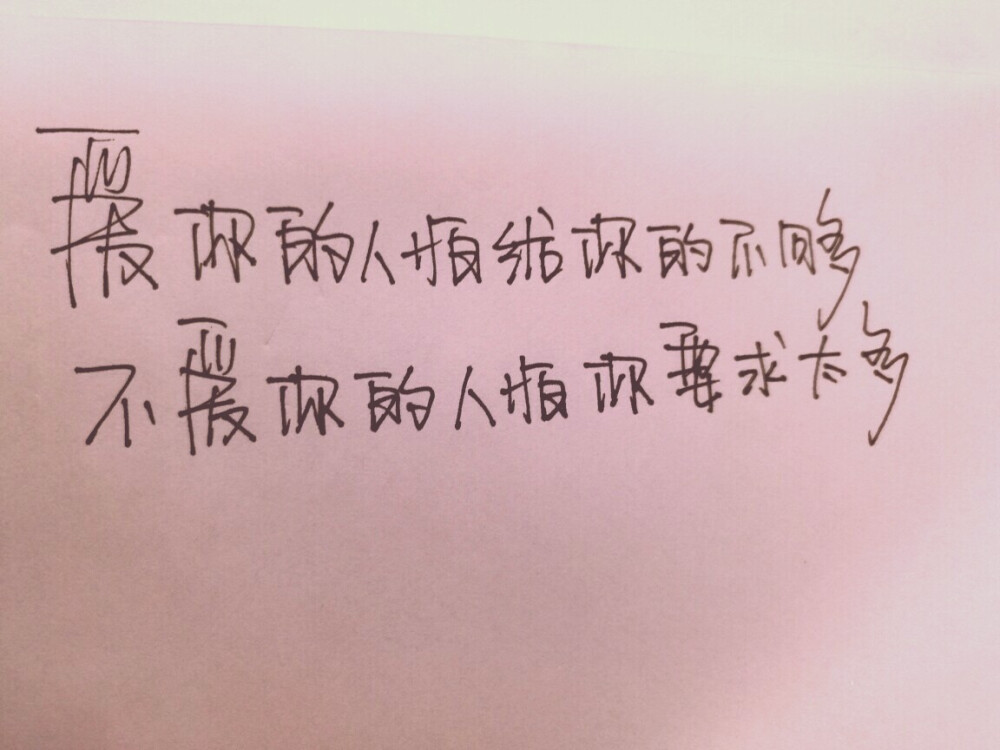 爱你的人怕给你的不够
不爱你的人怕你要求太多